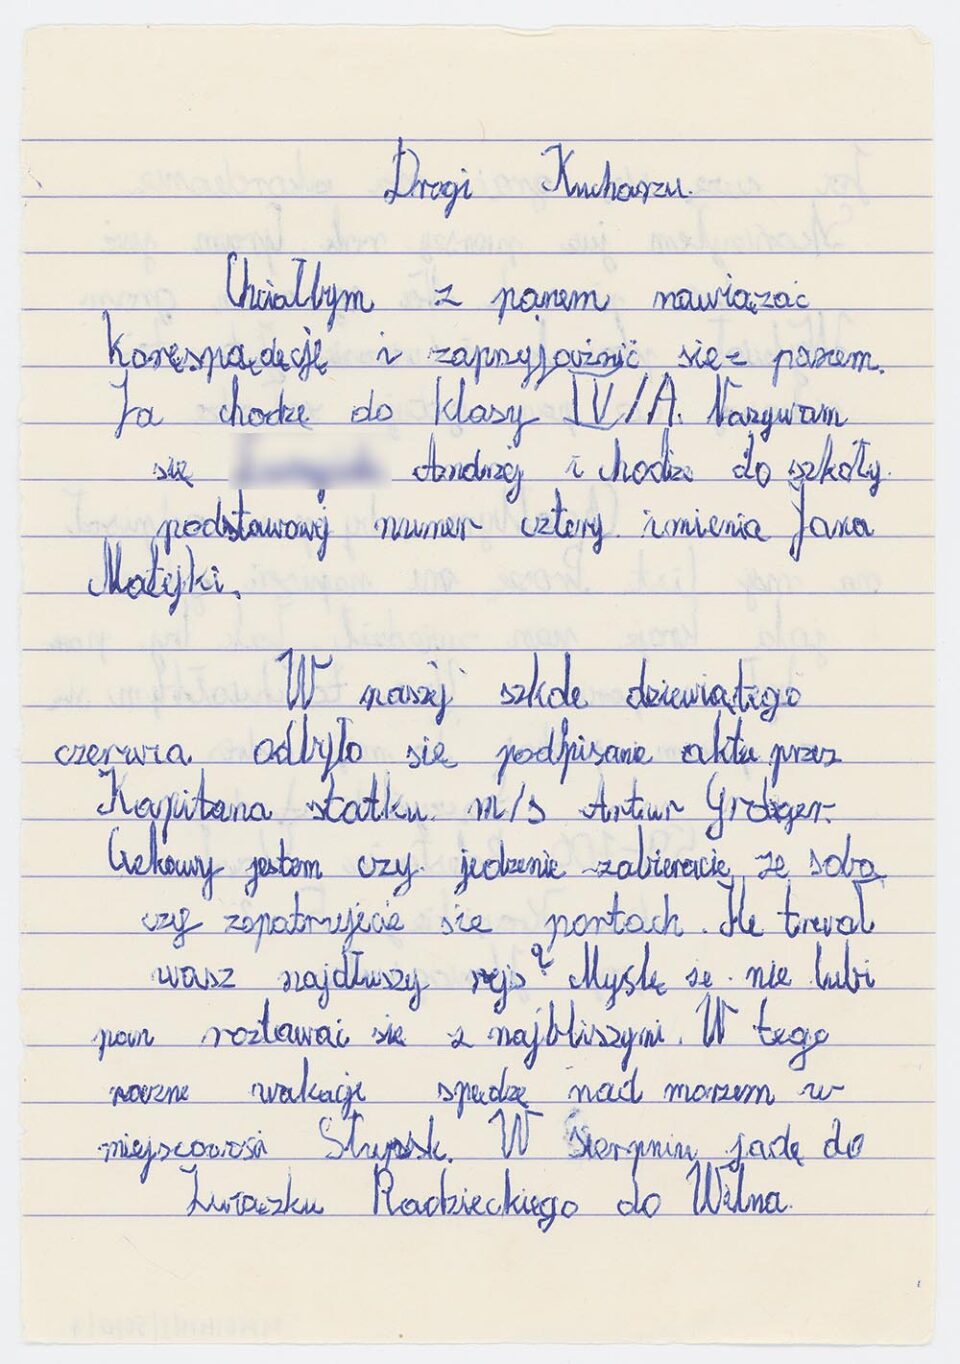 Drogi Kucharzu.
Chciałbym z panem nawiązać
korespądęcję i zaprzyjaźnić się z panem.
Ja chodzę do klasy IV/A. Nazywam
się Andrzej i chodzę do szkoły
podstawowej numer cztery imienia Jana
Matejki.
W naszej szkole dziewiątego
czerwca odbyło się podpisanie aktu przez
Kapitana statku m/s Artur Grotger.
Ciekawy jestem czy jedzenie zabieracie ze sobą
czy zapatrujecie się portach. Ile trwał
wasz najdłuszy rejs? Myślę że nie lubi
pan roztawać się z najbliszymi. W tego
roczne wakacje spędzę nad morzem w
miejscowości Słupsk. W sierpniu jadę do
Związku Radzieckiego do Wilna.